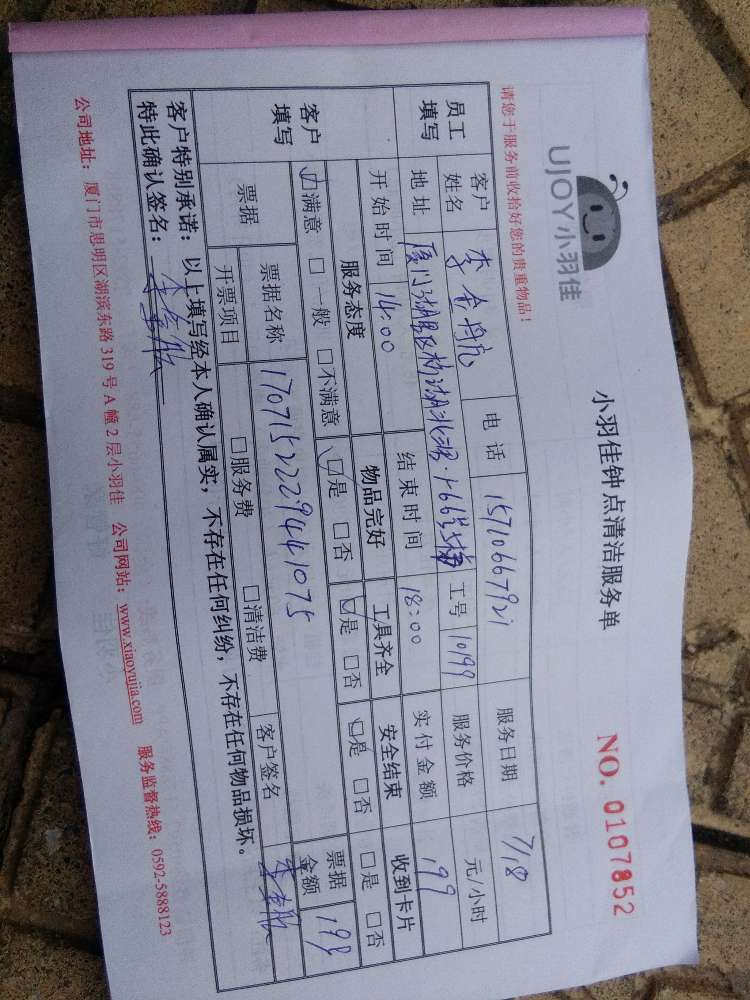 UJOY小羽佳
小羽佳钟点清洁服务单
NO. 0107852
请您于服务前收拾好您的贵重物品！
员工填写 客户姓名 李金 电话 15710667921 服务日期 7/18
地址 厦门 工号 10199 服务价格 元/小时
开始时间 14:00 结束时间 18:00 实付金额 199
客户填写 服务态度 物品完好 工具齐全 安全结束 收到卡片
☑满意 □一般 □不满意 ☑是 □否 ☑是 □否 ☑是 □否 □是 □否
票据 票据名称 1707152229441075 票据金额 198
开票项目 □服务费 □清洁费 客户签名
客户特别承诺：以上填写经本人确认属实，不存在任何纠纷，不存在任何物品损坏。
特此确认签名：
公司地址：厦门市思明区湖滨东路 319 号 A 幢 2 层小羽佳 公司网站：www.xiaoyujia.com 服务监督热线：0592-5888123